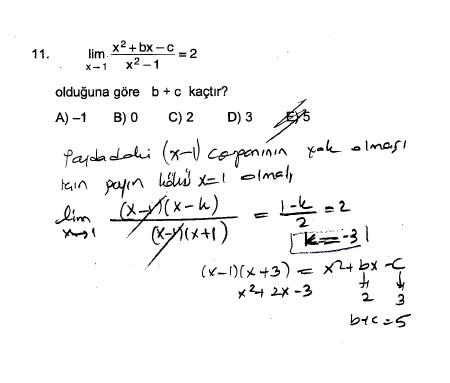 11. lim x→1 x²+bx−c / x²−1 = 2
olduğuna göre b + c kaçtır?
A) −1 B) 0 C) 2 D) 3 E) 5
Paydadaki (x-1) çarpanının yok olması
için payın kökü x=1 olmalı
lim x→1 (x-1)(x-k) / (x-1)(x+1) = 1-k / 2 = 2
k=-3
(x-1)(x+3) = x²+bx-c
x²+2x-3 2 3
b+c=5